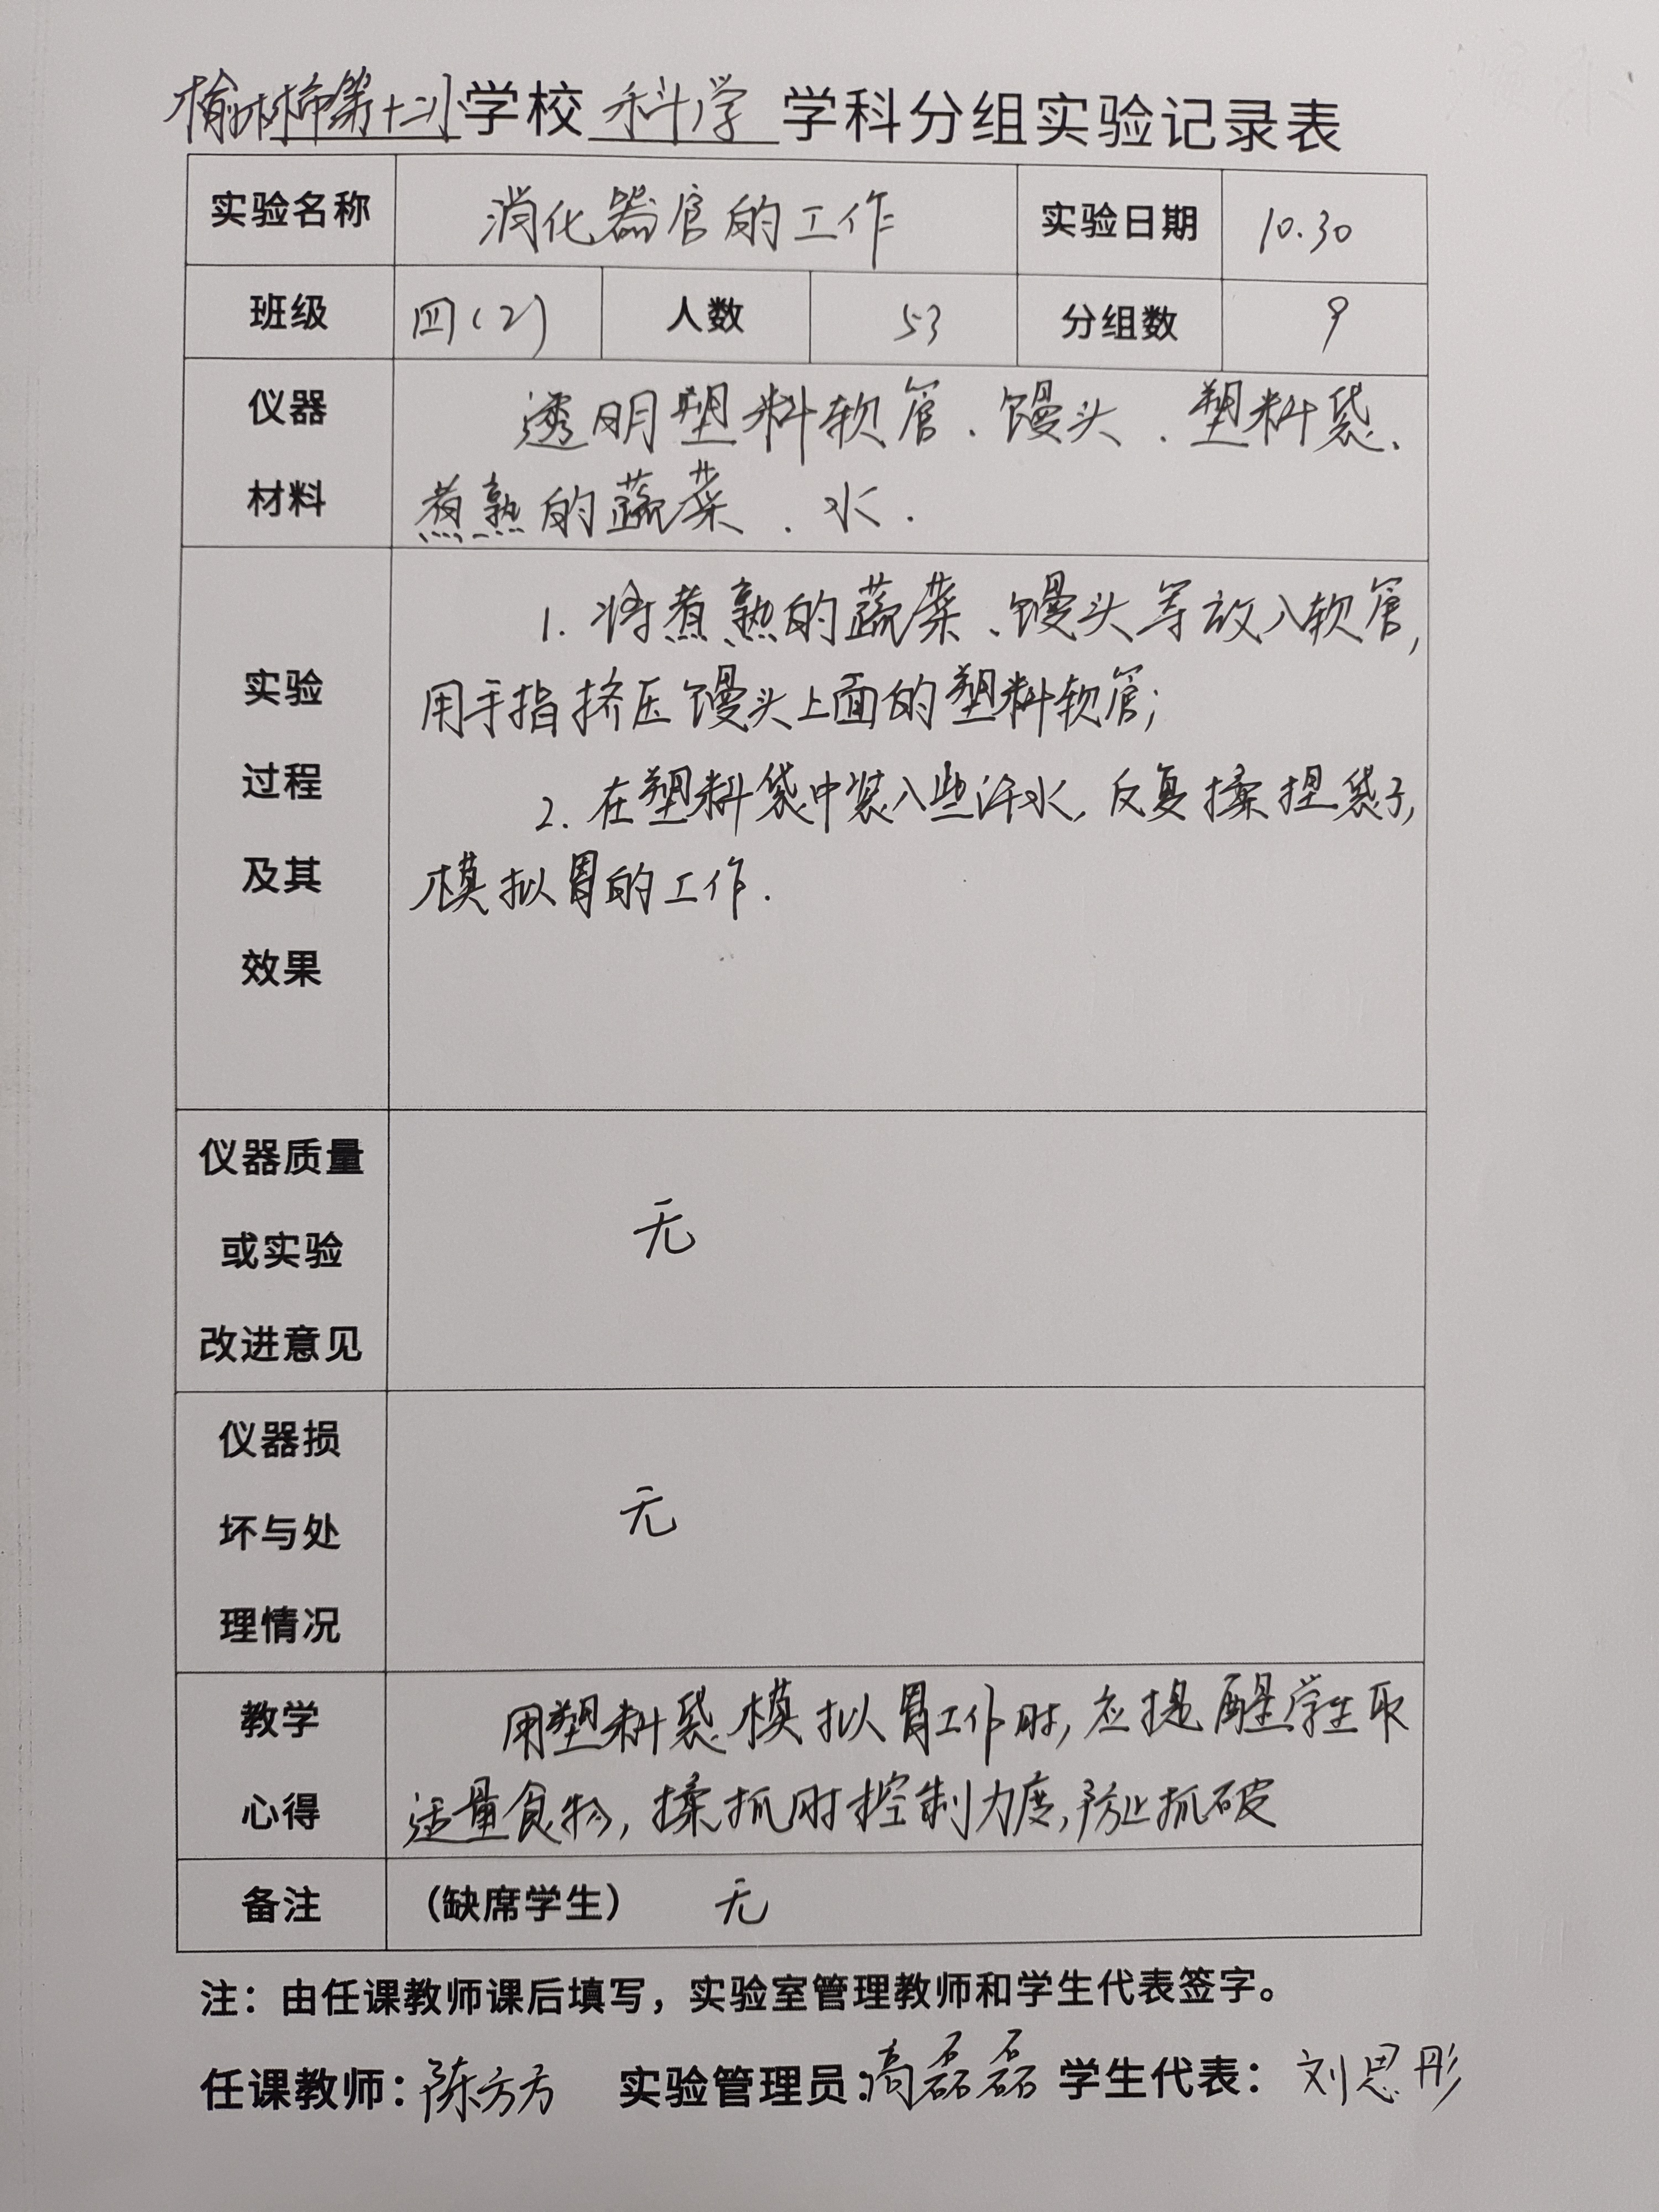 榆林市第十二小学校 科学 学科分组实验记录表
实验名称 消化器官的工作 实验日期 10.30
班级 四(2) 人数 53 分组数 9
仪器 透明塑料软管、馒头、塑料袋、
材料 煮熟的蔬菜、水.
1. 将煮熟的蔬菜、馒头等放入软管,
实验 用手指挤压馒头上面的塑料软管;
过程 2. 在塑料袋中装入些许水, 反复揉捏袋子,
及其 模拟胃的工作.
效果
仪器质量
或实验 无
改进意见
仪器损
坏与处 无
理情况
教学 用塑料袋模拟胃工作时, 应提醒学生取
心得 适量食物, 揉抓时控制力度, 防止抓破
备注 (缺席学生) 无
注：由任课教师课后填写，实验室管理教师和学生代表签字。
任课教师：陈方方 实验管理员：高磊磊 学生代表：刘思彤